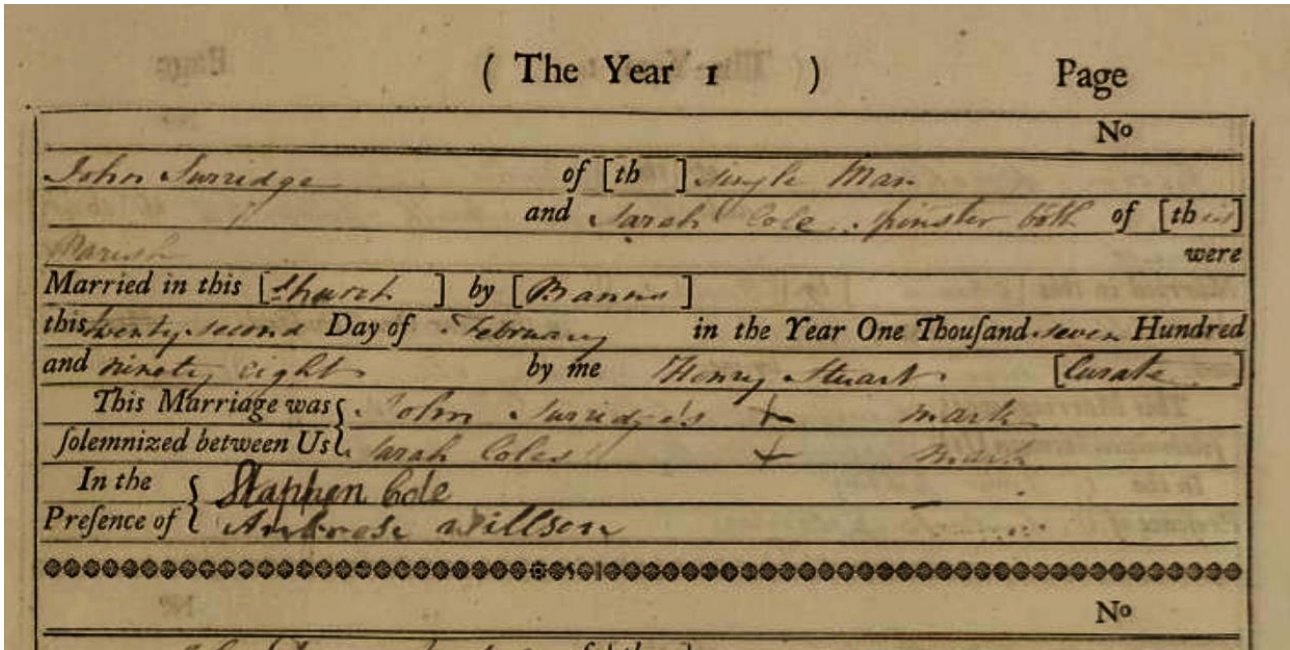 ( The Year 1 ) Page
No
John Surridge of [th ] single Man
and Sarah Cole spinster both of [this]
Parish were
Married in this [Church ] by [Banns ]
this twenty second Day of February in the Year One Thouſand seven Hundred
and ninety eight by me Henry Stuart [Curate ]
This Marriage was { John Surridge's + mark
ſolemnized between Us Sarah Coles + mark
In the { Staphen Cole
Preſence of Ambrose Willson
No